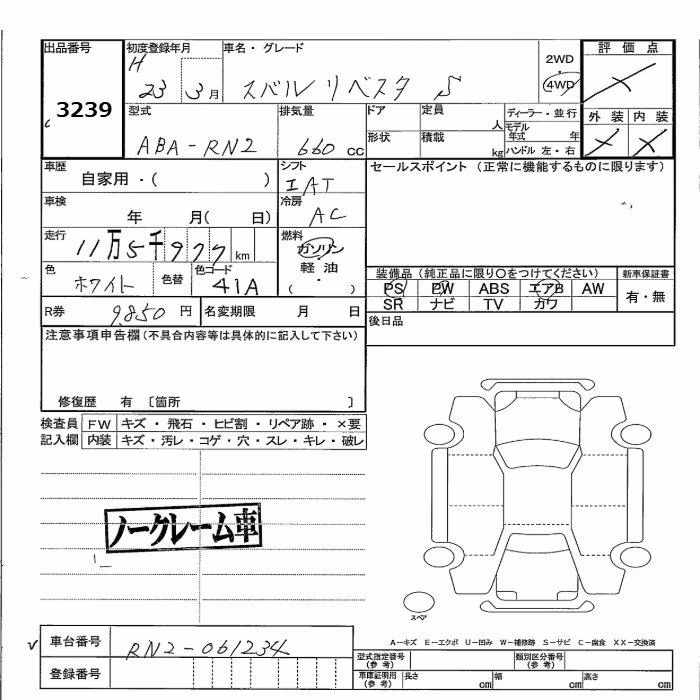 出品番号 初度登録年月 車名・グレード 2WD 評価点
3239 H 23 3月 スバル リベスタ S ・ 4WD
型式 排気量 ドア 定員 人 ディーラー・並行 外装 内装
ABA-RN2 660 cc 形状 積載 kg モデル年式 年 ハンドル 左・右
車歴 自家用・( ) シフト IAT セールスポイント (正常に機能するものに限ります)
車検 年 月( 日) 冷房 AC
走行 11万5千977 km 燃料 ガソリン
軽・油
( ・ )
色 ホワイト 色替 色コード 41A 装備品 (純正品に限り○をつけてください) 新車保証書
PS PW ABS エアB AW 有・無
SR ナビ TV カワ
R券 9,850 円 名変期限 月 日 後日品
注意事項申告欄(不具合内容等は具体的に記入して下さい)
修復歴 有 〔箇所 〕
検査員 FW キズ・飛石・ヒビ割・リペア跡・×要
記入欄 内装 キズ・汚レ・コゲ・穴・スレ・キレ・破レ
ノークレーム車
スペア
車台番号 RN2-061234 A−キズ E−エクボ U−凹み W−補修跡 S−サビ C−腐食 XX−交換済
登録番号 型式指定番号(参考) 類別区分番号(参考)
車庫証明用(参考) 長さ cm 幅 cm 高さ cm